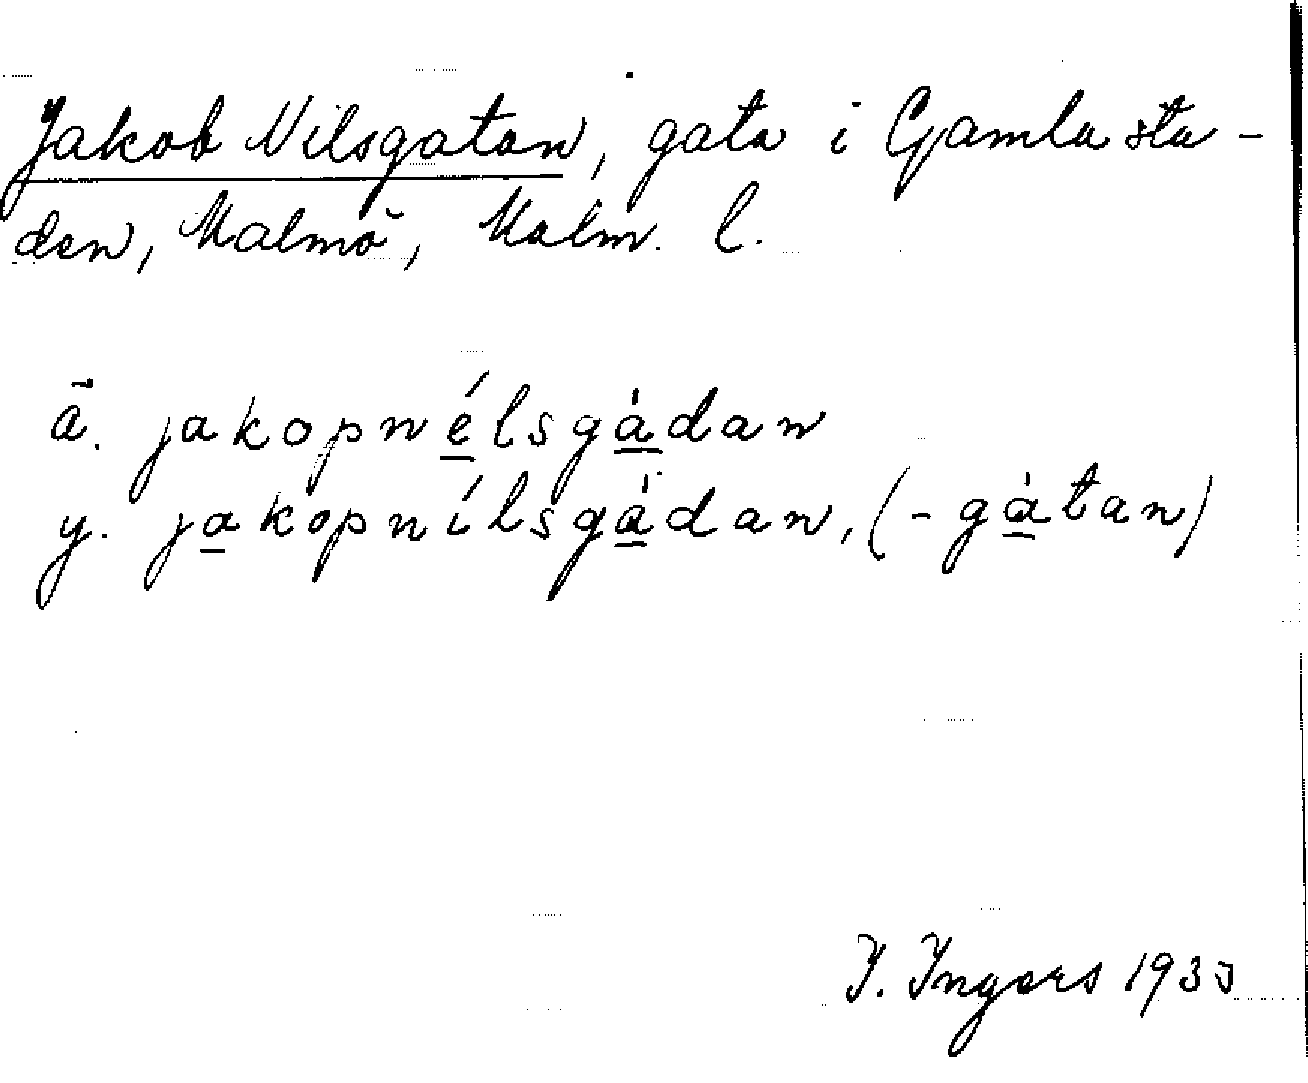 Jakob Nilsgatan, gata i Gamla sta-
den, Malmö, Malm. l.
ä. jakopnélsgàdan
y. jakopnílsgàdan, (-gàtan)
I. Ingers 1935